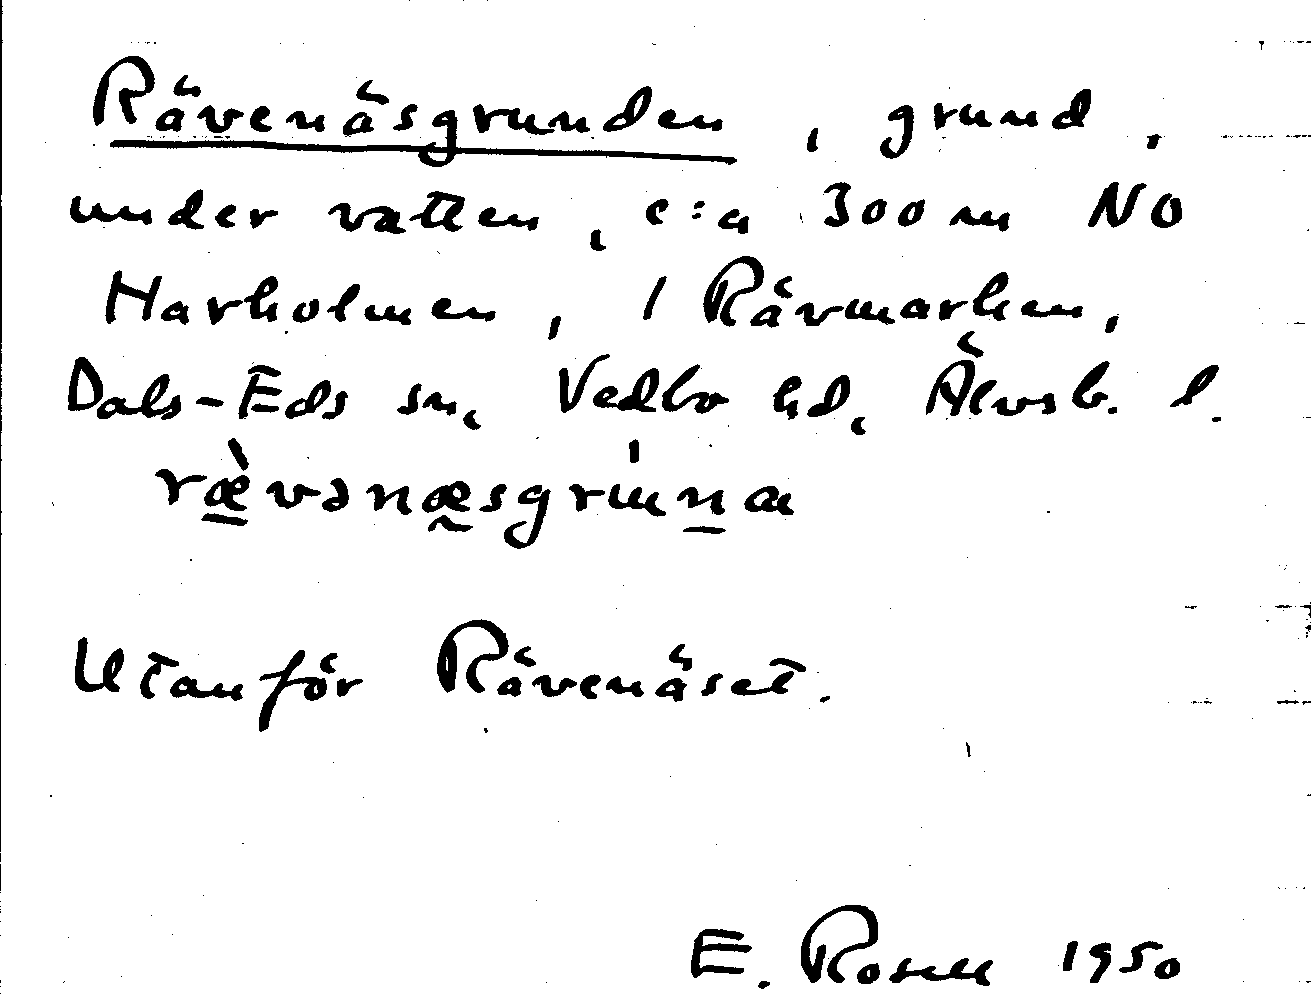 Rävenäsgrunden, grund,
under vatten, c:a 300 m NO
Harholmen, 1 Rävmarken,
Dals-Eds sn, Vedbo hd, Älvsb. l.
ræ̀vənæsgrúnna
Utanför Rävenäset.
E. Rosell 1950